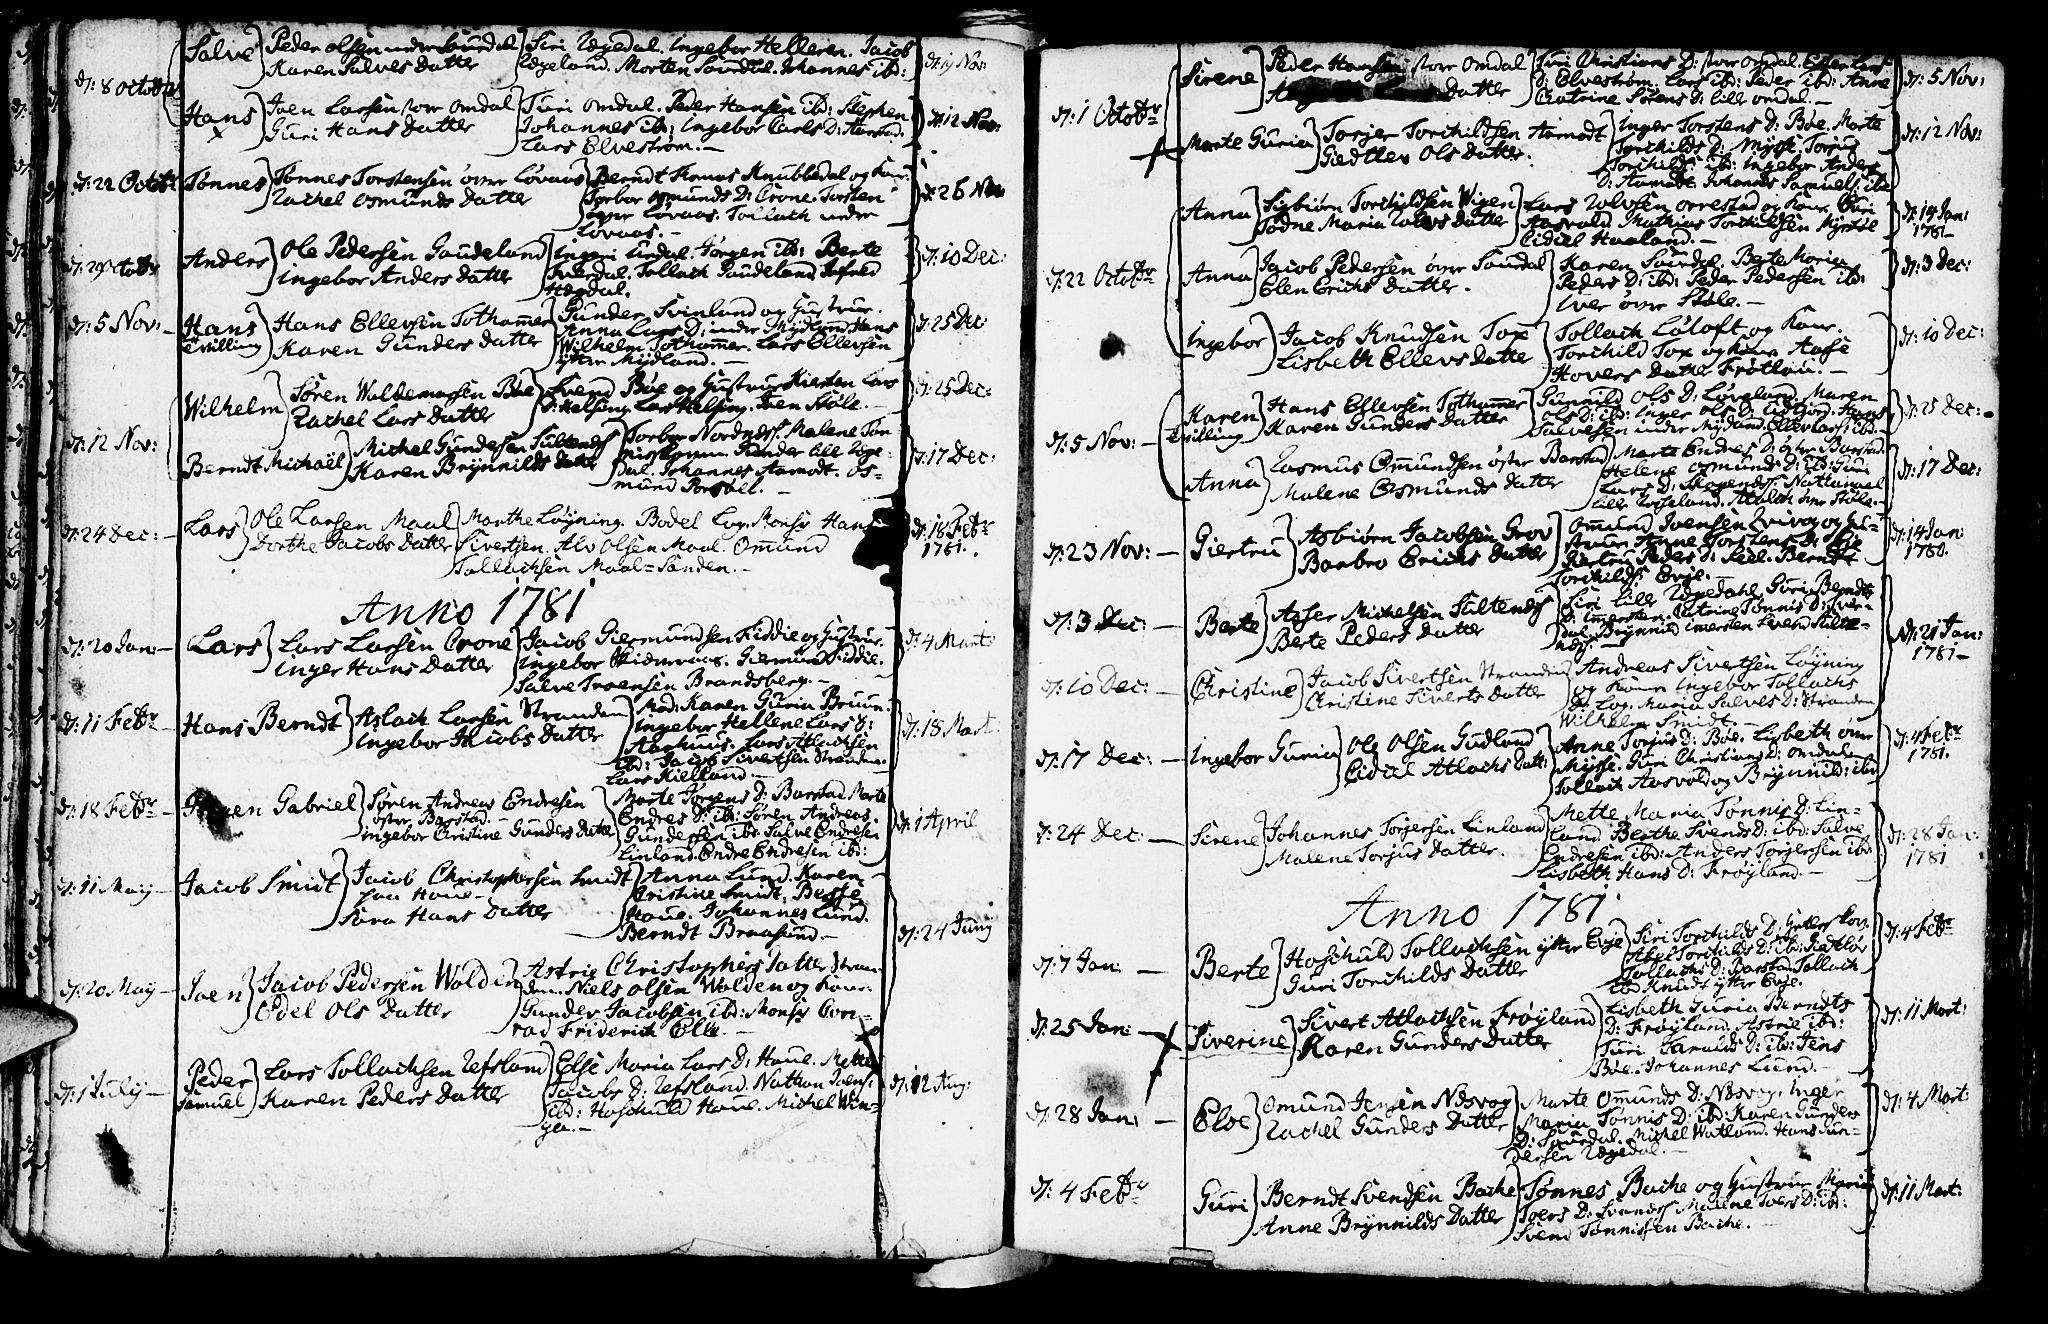 d: 8 Octobr
Salve
Peder Olsen under Suurdal
Karen Salves Datter
Siri Ægedal. Ingebor Helleren. Jacob
Ægeland. Morten Suurdal. Johannes ibd:
d: 19 Nov:
Hans
Joen Larsen stor Omdal
Guri Hans Datter
Turi Omdal. Peder Hansen ibd: Stephen
Johannes ibd: Ingebor Carls D: Aarstad.
Lars Elvestrøm. —
d: 12 Nov:
d: 22 Octobr
Tønnes
Tønnes Torstensen øvre Løvaas
Rachel Osmunds Datter
Berndt Knubbedal og Kone.
Torbor Osmunds D: Crone. Torsten
øvre Løvaas. Tollach under
Løvaas. —
d: 26 Nov
d: 29 Octobr
Anders
Ole Pedersen Gaudeland
Ingebor Anders Datter
Ingeri Urdal. Jørgen ibd: Berte
Tollach Gaudeland
Hægdal.
d: 10 Dec:
d: 5 Nov: —
Hans
tvilling
Hans Ellevsen Tothammer
Karen Gunders Datter
Gunder Svinland og Hustrue.
Anna Lars D: under Mydland. Hans
Wilhelm Tothammer. Lars Ellevsen
ytter Mydland. —
d: 25 Dec:
Wilhelm
Søren Woldemarsen Bøe
Rachel Lars Datter
Svend Bøe og Hustrue Kirsten Lars
D: Helsing. Lars Helsing. Joen Støle. —
d: 25 Dec:
d: 12 Nov:
Berndt Michaël
Michel Gundersen Sultendss
Karen Brynnilds Datter
Torbor Nordndss. Malene
Gunder lille Æge-
dal. Johannes Aamodt. Os-
mund —
d: 17 Dec:
d: 24 Dec: —
Lars
Ole Larsen Maal
Dorthe Jacobs Datter
Marthe Løyning. Bodel Log. Monsr Hans
Sivertsen. Alv Olsen Maal. Omund
Tollachsen Maal-Sanden. —
d: 18 Febr
1781.
Anno 1781
d: 20 Jan: —
Lars
Lars Larsen Crone
Inger Hans Datter
Jacob Giermundsen Fiddie og Hustrue.
Ingebor Giermund Fiddie.
Salve Troensen Brandsberg. —
d: 4 Martz
d: 11 Febr —
Hans Berndt
Aslach Larsen Stranden
Ingebor Jacobs Datter
Mad: Karen Guria Bruun.
Ingebor Hellene Lars D:
Aarhuus. Lars Atlachsen
ibd: Jacob Sivertsen Stranden.
Lars Kielland. —
d: 18 Mart:
d: 18 Febr —
Gabriel
Søren Andreas Endresen
øster Barstad. —
Ingebor Christine Gunders Datter
Marte Jørgens D: Barstad. Marte
Endres D: ibd: Søren Andreas.
Gundersen ibd. Salve Endresen
Linland. Endre Endresen ibd:
d: 1 April
d: 11 May —
Jacob Smidt
Jacob Christophersen Smidt
fra Haue —
Sara Hans Datter
Anna Lund. Karen
Cristine Smidt. Besse
Haue. Johannes Lund.
Berndt Braasund. —
d: 24 Juny
d: 20 May —
Joen
Jacob Pedersen Wolden
Edel Ols Datter
Astrie Christophers Datter Stran-
den. Niels Olsen Wolden og Kone.
Gunder Jacobsen ibd: Monsr Con-
rad Friderich Elle. —
d: 1 July —
Peder
Samuel
Lars Tollachsen Refsland
Karen Peders Datter
Else Maria Lars D: Haue. Mette
Jacobs D: Refsland. Nathan Joens:
ibd: Hoschuld Haue. Michel Win-
ger. —
d: 12 Aug:
d: 1 Octobr
Sirene
Peder Hansen stor Omdal
Datter
Siri Christians D: stor Omdal. Ellen Lars
D: Elvestrøm. Lars ibd: Peder ibd: Anne
Catrine Sørens D: lille Omdal. —
d: 5 Nov:
Marte Guria
Torjer Torchildsen Aamodt
Giedtlev Ols Datter.
Inger Torstens D: Bøe. Marte
Torchilds D: Mysse. Torjus
Torchilds: ibd: Ingebor Anders
D: Aamodt. Johannes Samuels: ibd
d: 12 Nov:
d: 22 Octobr
Anna
Sigbiørn Torchildsen Wigen
Todne Maria Rolvs Datter
Lars Rolvsen Orrestad og Kone. Guri
Aasvold. Mathias Torchildsen Myssøe
Eidiel Haaland. —
d: 14 Jan:
1781 —
Anna
Jacob Pedersen øvre Suurdal
Elen Erichs Datter.
Karen Suurdal. Berte Maria
Peders D: ibd: Peder Pedersen ibd:
Iver øvre Støle. —
d: 3 Dec:
Ingebor
Jacob Knudsen Tox
Lisbeth Ellevs Datter
Tollach Løloft og Kone.
Torchild Tox og Kone. Aasse
Hovers Datter Frøtløu. —
d: 10 Dec:
d: 5 Nov: —
Karen
tvilling
Hans Ellevsen Tothammer
Karen Gunders Datter
Gunnild Ols D: Løveland. Maren
Ols D: ibd: Inger Ols D: Hans
Salvesen under Mydland. Ellev Lars: ibd. —
d: 25 Dec:
Anna
Rasmus Omundsen øster Barstad
Malene Osmunds Datter
Marte Endres D: øster Barstad.
Helene Osmunds D: ibd: Guri
Lars D: Skogendss. Nathanael
lille Ægeland. Atlach øvre Støle. —
d: 17 Dec:
d: 23 Nov: —
Giertru
Asbiørn Jacobsen Grov
Barbro Erichs Datter
Omund Joensen Qvivog og Hu-
struer Anne Torstens D: ibd
Giertru Peders D: Seel. Berndt
Torchilds: Evje. —
d: 14 Jan:
1780.
d: 3 Dec: —
Berte
Asser Michelsen Sultendss
Berte Peders Datter
Siri lille Ægedahl. Guri Berndts
D: Immersten. Catrine Tønnis D:
dal. Brynnild Imersten. Svend Sulte-
ndss. —
d: 21 Jan:
1781 —
d: 10 Dec: —
Christine
Jacob Sivertsen Stranden
Christine Siverts Datter
Andreas Sivertsen Løyning
og Kone Ingebor Tollachs
D: Log. Maria Salves D: Stranden
Wilhelm Smidt. —
d: 17 Dec: —
Ingebor Guria
Ole Olsen Gudland
Eidiel Atlachs Datt:
Anne Torjus D: Bøe. Lisbeth øvre
Mysse. Guri Christians D: Omdalen
Tollach Aasvold og Brynnild: ibd
d: 4 Febr
1781.
d: 24 Dec: —
Sirene
Johannes Torjersen Linland
Malene Torjus Datter.
Mette Maria Tønnis D: Lin-
land. Berthe Svends D: ibd: Salve
Endresen ibd: Anders Torjersen ibd:
Lisbeth Hans D: Frøyland. —
d: 28 Jan:
1781
Anno 1781
d: 7 Jan: —
Berte
Hoschuld Tollachsen ytter Evje
Guri Torchilds Datter
Siri Torchilds D:
Torchilds D: ibd: Giedtløv
Tollachs D: Barstad. Tollach
ibd. Knud ytter Evje.
d: 4 Febr
d: 25 Jan: —
Siverine
Sivert Atlachsen Frøyland
Karen Gunders Datter
Lisbeth Guria Berndts
D: Frøyland. Astrie ibd:
Turi Haralds D: ibd: Jens
Bøe. Johannes Lund. —
d: 11 Mart:
d: 28 Jan: —
Eloe
Omund Jensen Næsvog
Rachel Gunders Datter
Marte Omunds D: Næsvog. Inger
Maria Tønnis D: ibd: Karen Gunders
D: Suurdal. Michel Watland. Hans Gun-
dersen Ægedal. —
d: 4 Mart:
d: 4 Febr
Guri
Berndt Svendsen Bache
Anne Brynnilds Datter
Tønnes Bache og Hustrue Maria
Joers D: Svendss Malene Joers D: ibd:
Svend Tønnissen Bache. —
d: 11 Mart: